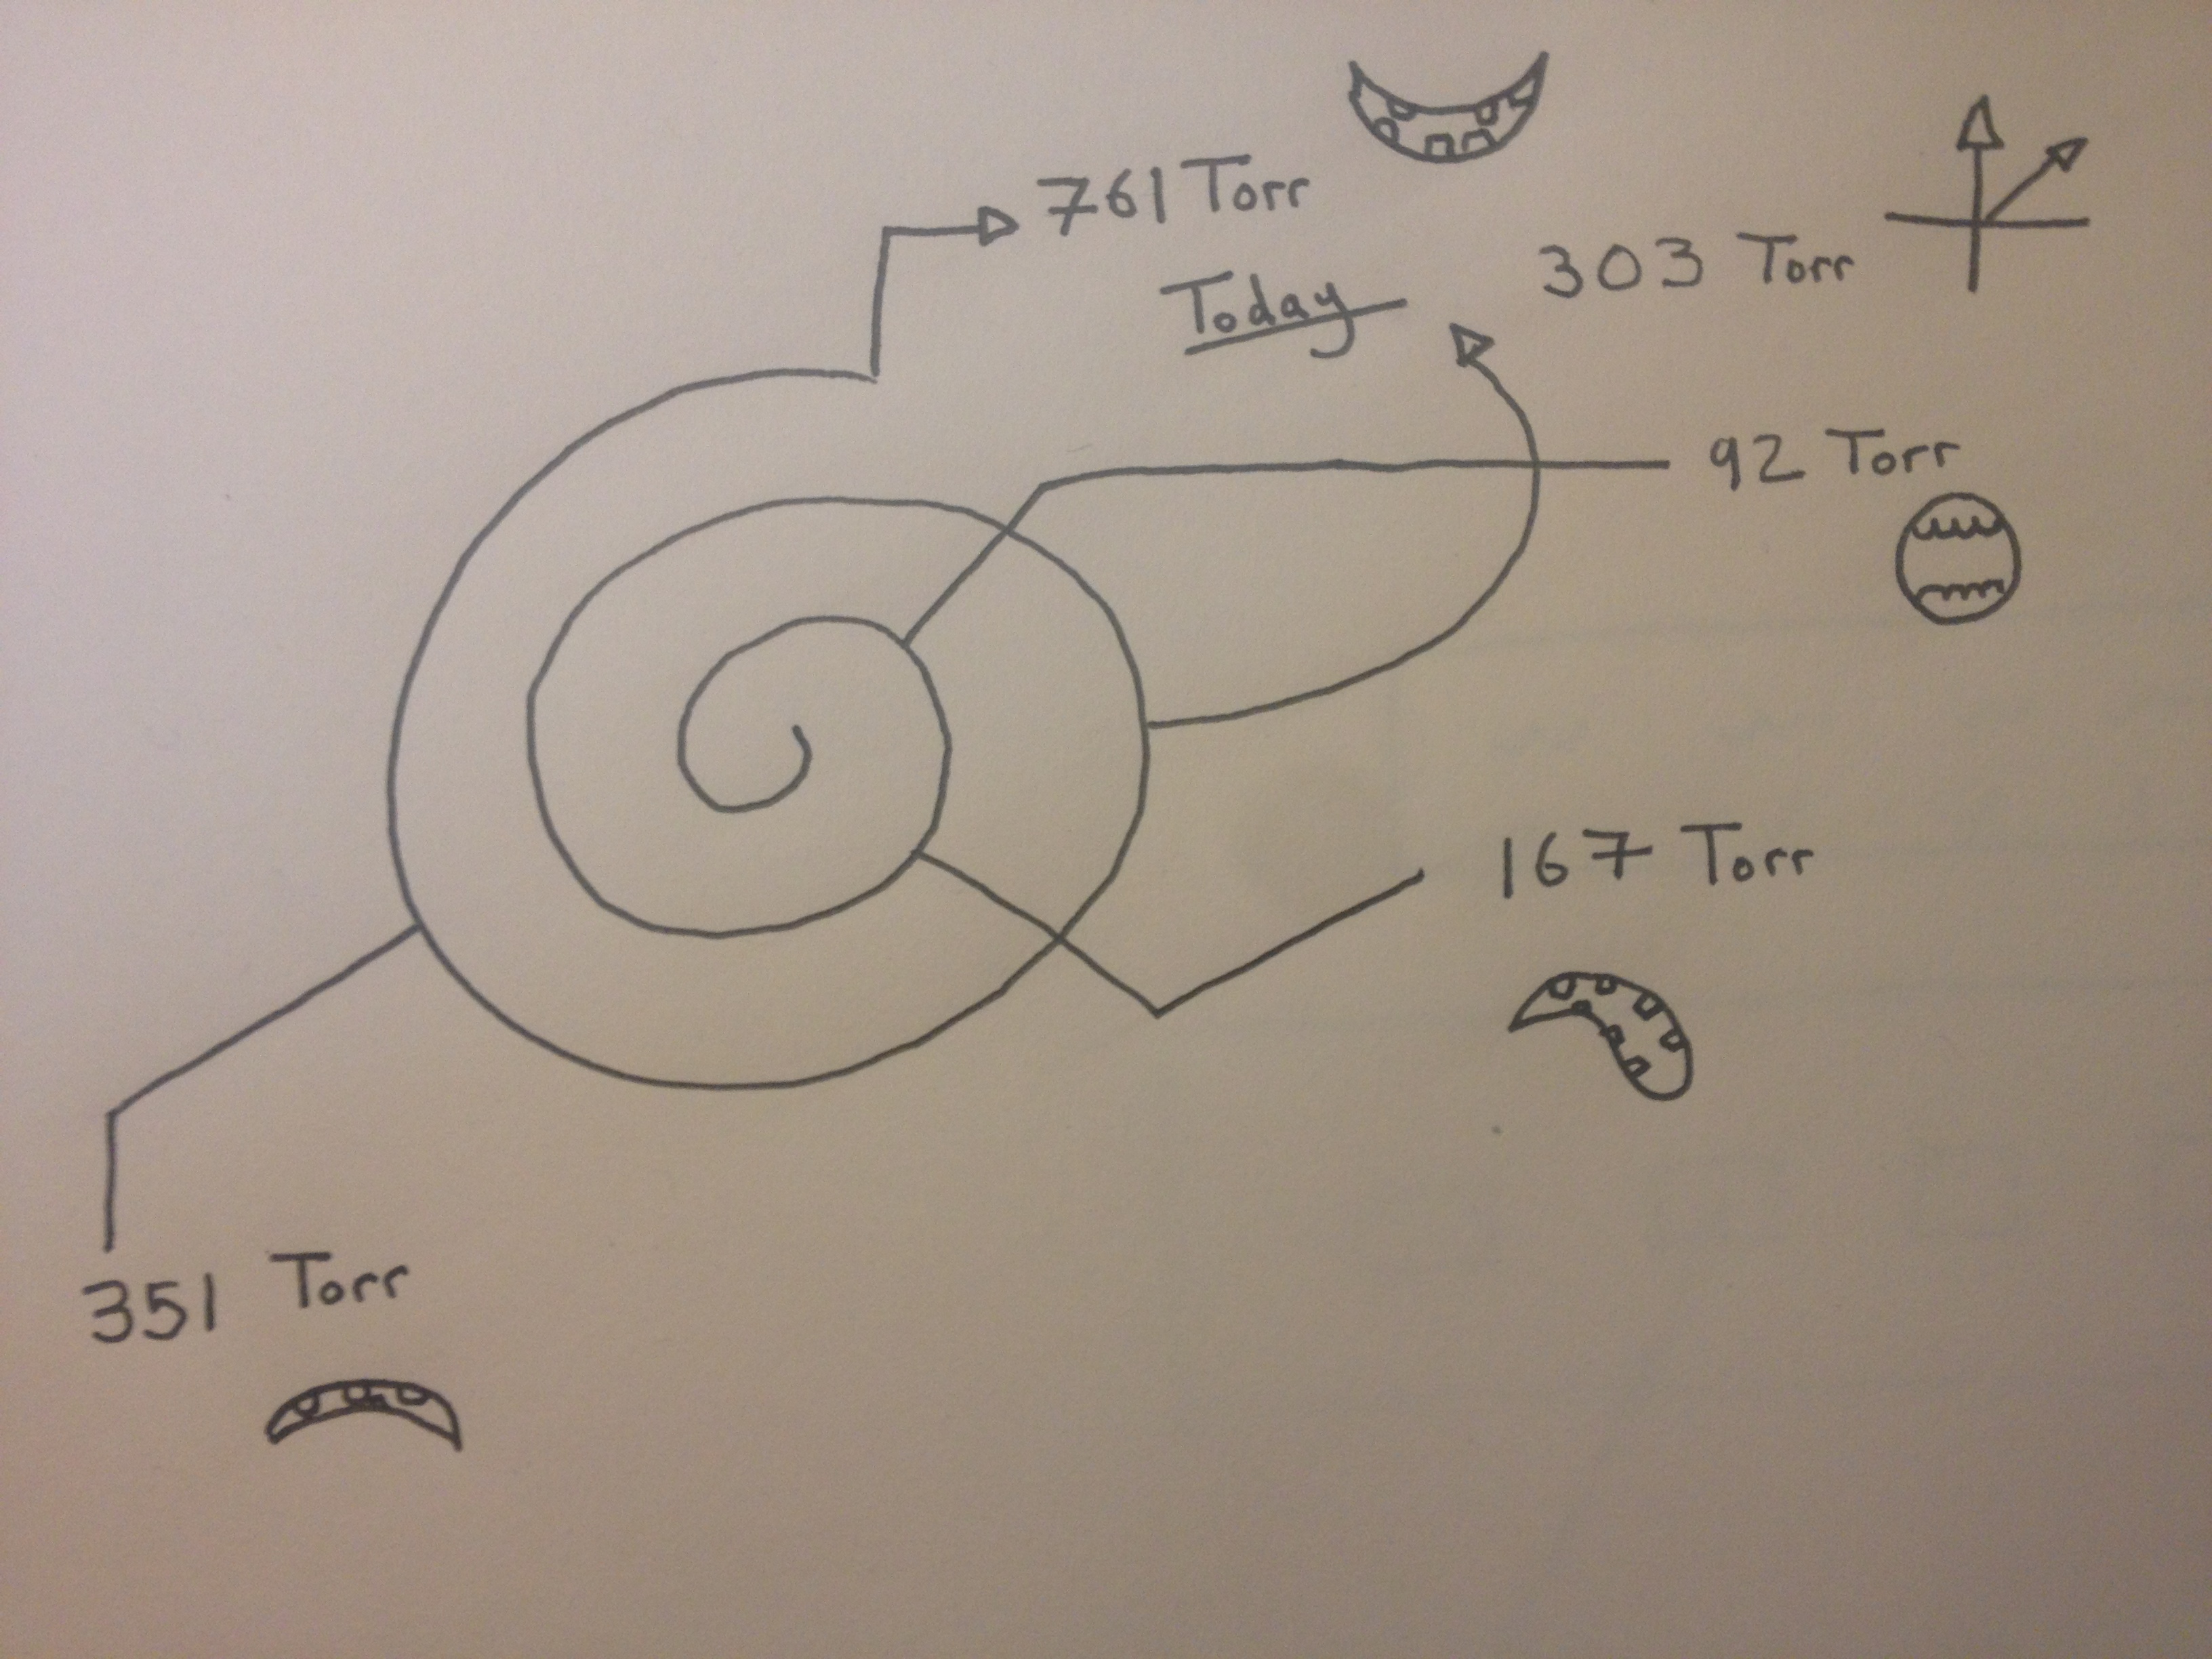 761 Torr
Today
303 Torr
92 Torr
167 Torr
351 Torr